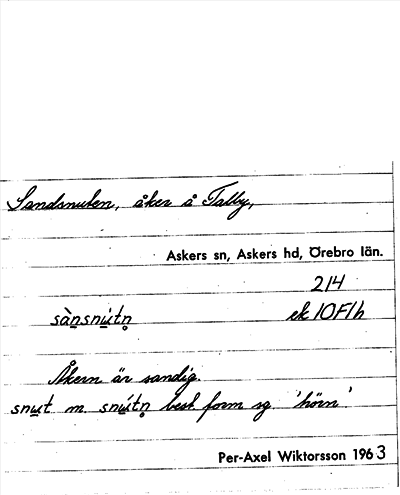 Sandsnuten, åker å Talby,
Askers sn, Askers hd, Örebro län.
214
sàn̠snu̠tn̥ ek 10F1h
Åkern är sandig.
snu̠t m. snú̠tn̥ best form sg. 'hörn'.
Per-Axel Wiktorsson 1963